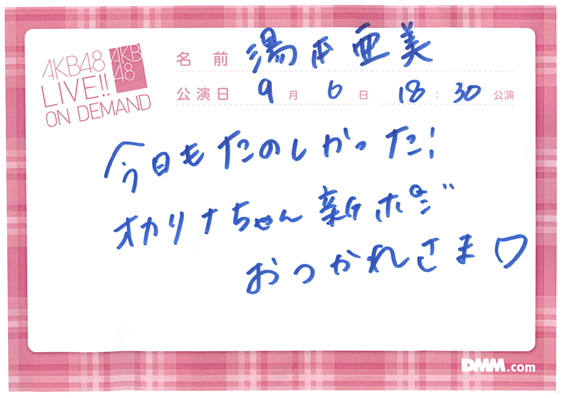 AKB48
LIVE!!
ON DEMAND
AKB
48
名前 湯本亜美
公演日 9月6日 18:30公演
今日もたのしかった!
オカリナちゃん新ポジ
おつかれさま♡
DMM.com